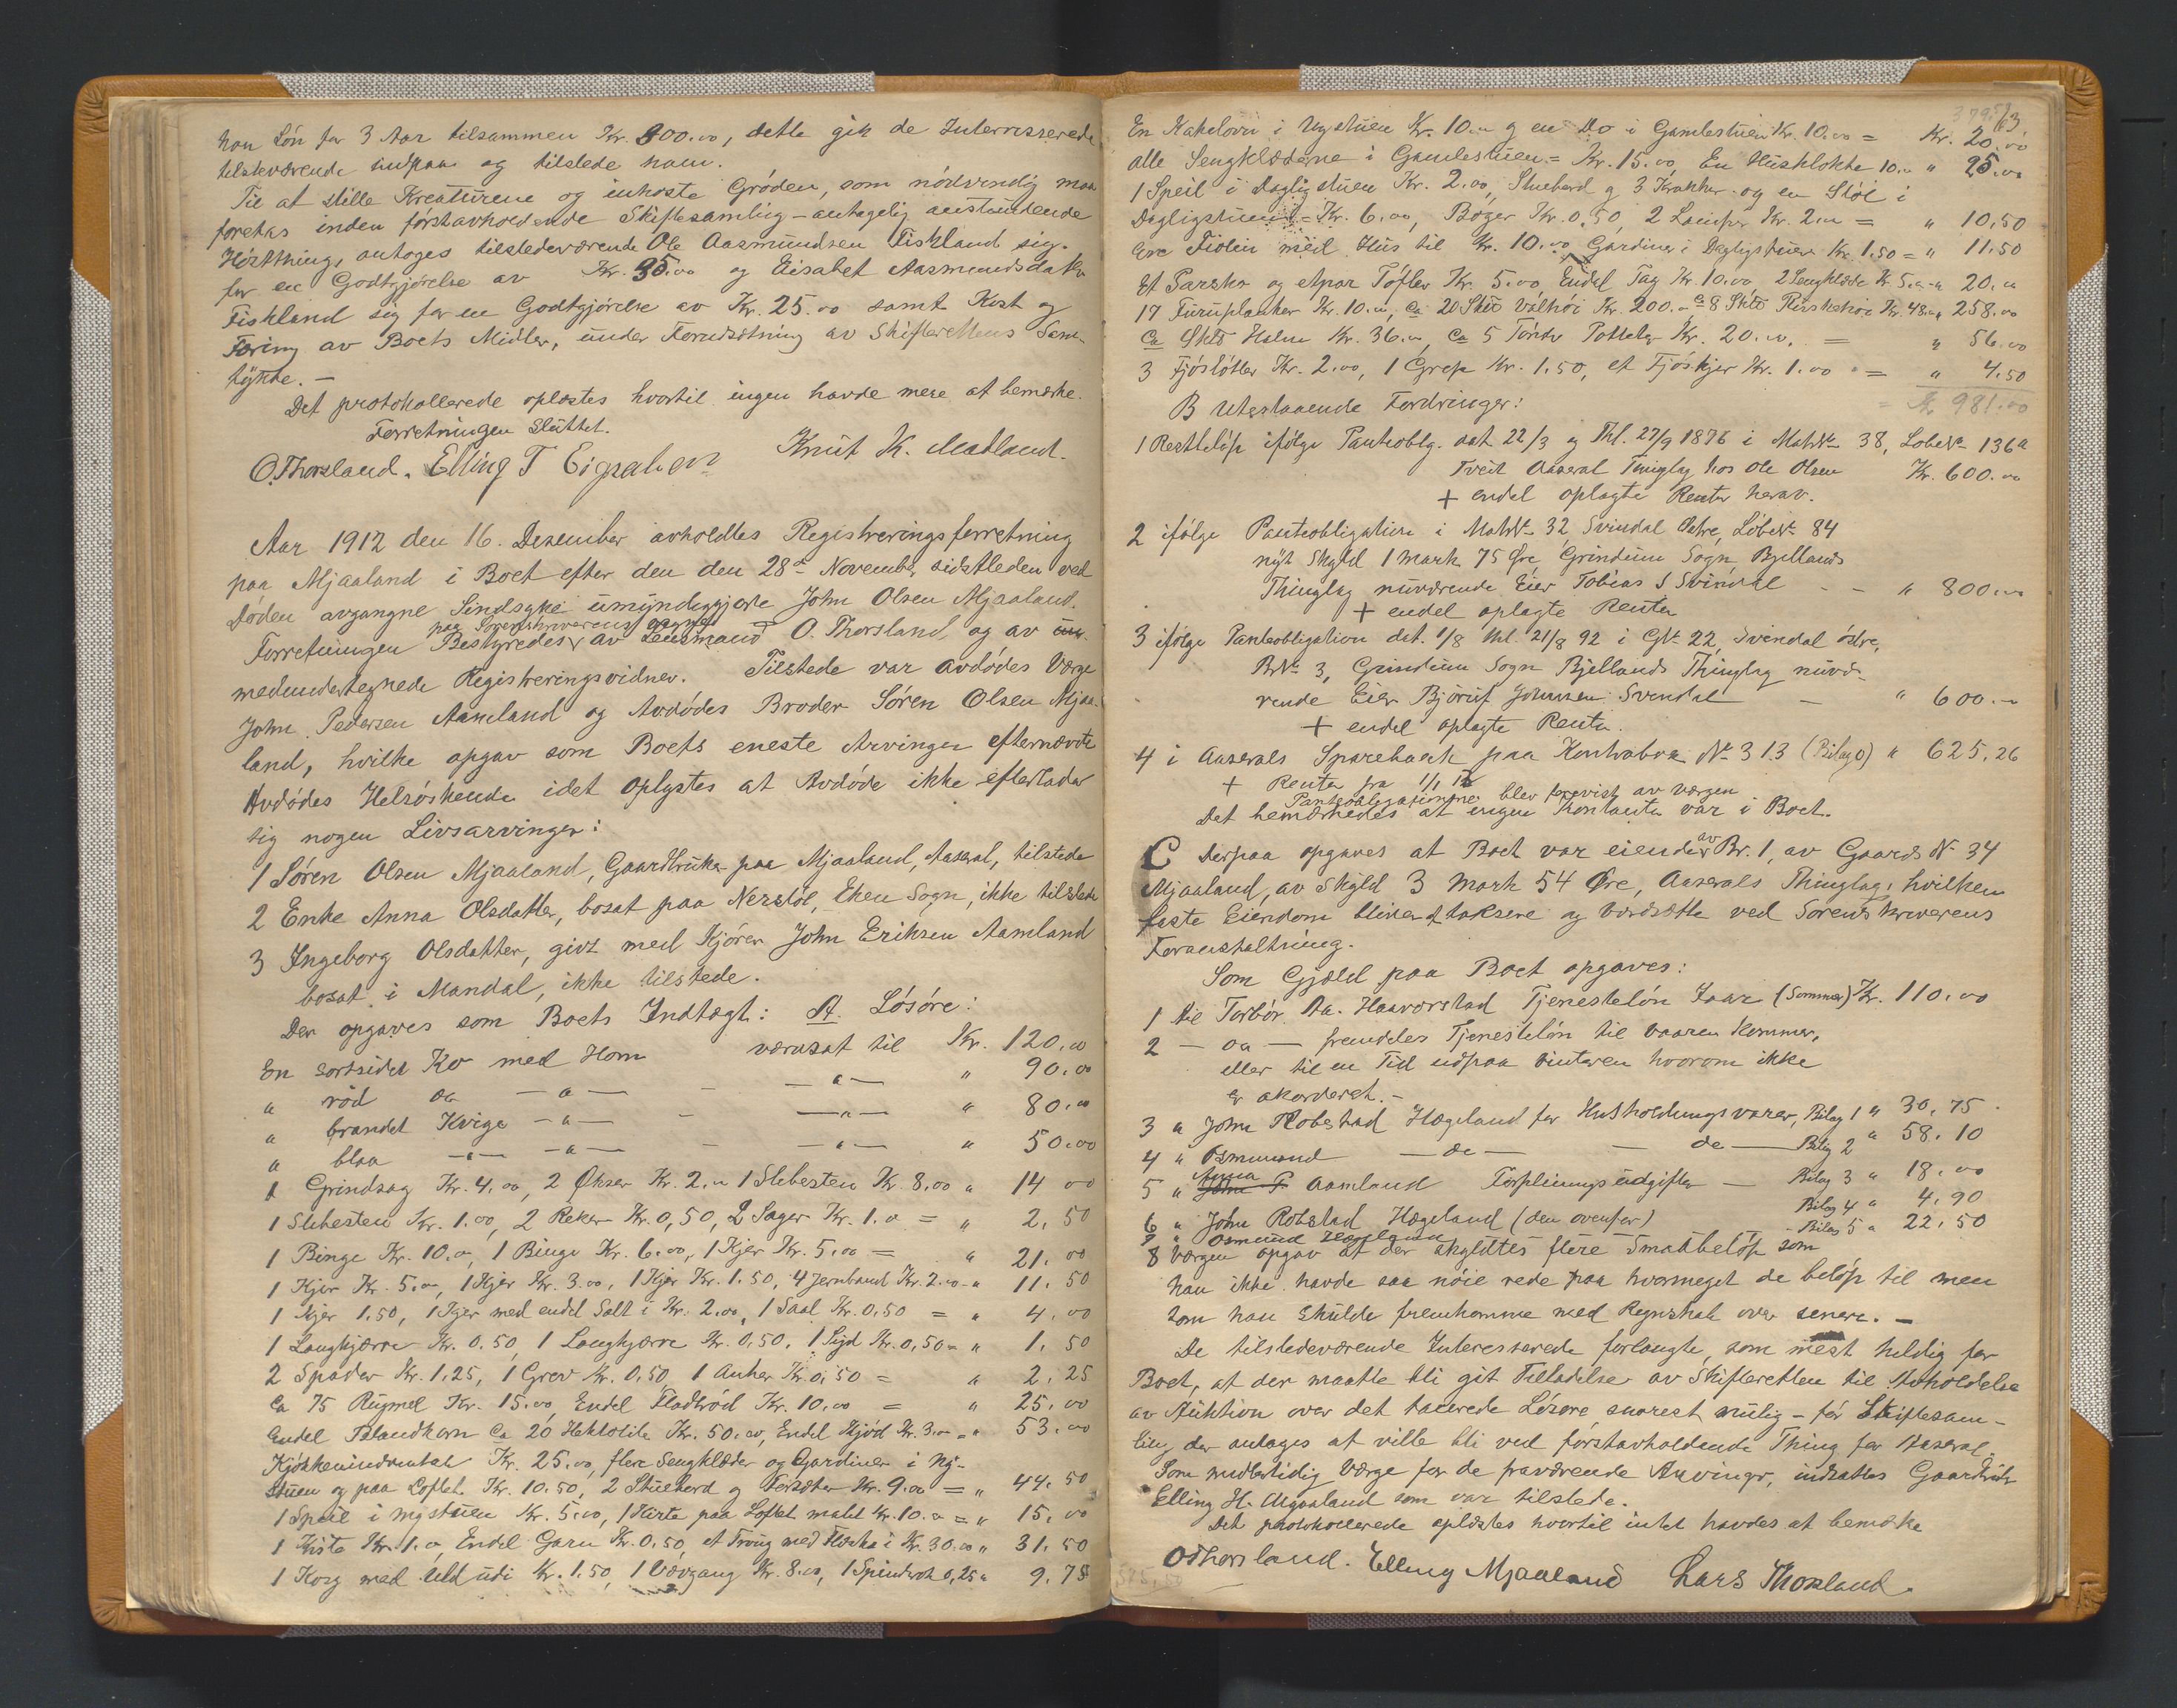 han Løn for 3 Aar tilsammen Kr. 900.00, dette gik de Interresserede
tilstedeværende indpaa og tilstede ham.
Til at stille Kreaturene og inhøste Grøden, som nødvendig maa
foretas inden førstavholdende Skiftesamling - antagelig anstundende
Høstthing, antoges tilstedeværende Ole Aasmundsen Fiskland sig.
for en Godtgjørelse av Kr. 35.00 og Elisabet Aasmundsdatter
Fiskland sig for en Godtgjørelse av Kr. 25.00 samt Kost og
Føring av Boets Midler, under Forudsætning av Skifterettens Sam-
tykke. -
Det protokollerede oplæstes hvortil ingen havde mere at bemærke.
Forretningen sluttet.
O. Thorsland. Elling T Knut K. Aadland.
Aar 1912 den 16. Desember avholdtes Registreringsforretning
paa Mjaaland i Boet efter den den 28de November sidstleden ved
Døden avgangne Sindsyke umyndiggjorte John Olsen Mjaaland.
Forretningen Bestyredes paa Sorenskriverens vegne av Lensmand O. Thorsland, og av
medundertegnede Registreringsvidner. Tilstede var avdødes Værge
John Pedersen Aamland og Avdødes Broder Søren Olsen Mjaa-
land, hvilke opgav som Boets eneste Arvinger efternævnte
Avdødes Helsøskende idet oplystes at Avdøde ikke efterlader
sig nogen Livsarvinger:
1 Søren Olsen Mjaaland, Gaardbruker paa Mjaaland, Aaseral, tilstede
2 Enke Anna Olsdatter, bosat paa Nerstøl, Eken Sogn, ikke tilstede
3 Ingeborg Olsdatter, givt med Kjører John Eriksen Aamland
bosat i Mandal, ikke tilstede.
Der opgaves som Boets Indtægt: A. Løsøre:
En sortsidet Ko med Horn værdsat til Kr. 120.00
" rød do - " - - - " - " 90.00
" brandet Kvige - " - - - " - " 80.00
" blaa - " - - " - - - " - " 50.00
1 Grindsag Kr. 4.00, 2 Økser Kr. 2.00 1 Slibesten Kr. 8.00 " 14 00
1 Slibesten Kr. 1.00, 2 Reker Kr. 0,50, 2 Sager Kr. 1.00 = " 2. 50
1 Binge Kr. 10.00, 1 Binge Kr. 6.00, 1 Kjer Kr. 5.00 = " 21. 00
1 Kjer Kr. 5.00, 1 Kjer Kr. 3.00, 1 Kjer Kr. 1.50, 4 Jernbaand Kr. 2.00 - " 11. 50
1 Kjer 1.50, 1 Kjer med endel Salt i Kr. 2.00, 1 Saal Kr. 0.50 = " 4. 00
1 Langkjærre Kr. 0.50, 1 Langkjærre Kr. 0.50. 1 Sigd Kr. 0,50 = " 1. 50
2 Spader Kr. 1.25, 1 Grev Kr. 0.50, 1 Anker Kr. 0.50 = " 2. 25
Ca 75 Rugmel Kr. 15.00, Endel Fladbrød Kr. 10.00 = " 25. 00
Endel Blandkorn Ca 20 Hektoliter Kr. 50.00, Endel Kjød Kr. 3.00 = " 53.00
Kjøkkeninventar Kr. 25.00, flere Sengklæder og Gardiner i Ny-
stuen og paa Loftet Kr. 10.50, 2 Stuebord og Kr. 9.00 = " 44. 50
1 Speil i nystuen Kr. 5.00, 1 Kiste paa Loftet malet Kr. 10.00 = " 15. 00
1 Kiste Kr. 1.00, Endel Garn Kr. 0.50, et Traug med Flæske i Kr. 30.00 " 31. 50
1 Korg med Uld udi Kr. 1.50, 1 Vævgang Kr. 8.00, 1 Spindrok 0,25 " 9. 75
63.
En Kakelovn i Nystuen Kr. 10.00 og en Do i Gamlestuen Kr. 10.00 = Kr. 20.00
alle Sengklæderne i Gamlestuen = Kr. 15.00, En Husklokke 10.00 " 25.00
1 Speil i Dagligstuen Kr. 2.00, Stuebord og 3 Krakker og en Stol i
Dagligstuen = Kr. 6.00, Bøger Kr. 0.50, 2 Lamper Kr. 2.00 = " 10.50
En Fiolin med Hus til Kr. 10.00, Gardiner i Dagligstuen Kr. 1.50 = " 11.50
Et Parsko og etpar Tøfler Kr. 5.00, Endel Tøy Kr. 10.00, 2 Sengklæde Kr. 5.00 " 20.00
17 Furuplanker Kr. 10.00, Ca 20 Skto Vollhøi Kr. 200.- Ca 8 Skto Kr. 48.00 " 258.00
Ca Skto Halm Kr. 36.00, Ca 5 Tønder Poteter Kr. 20.00. = " 56.00
3 Kr. 2.00, 1 Grep Kr. 1.50, et Fjøskjer Kr. 1.00 = " 4.50
Kr 981.00
B Utestaaende Fordringer:
1 Restbeløp ifølge Panteoblg. dat. 22/3 og Thl. 27/9 1876 i Matr№ 38, Løbe№ 136a
Tveit Aaseral Thinglag hos Ole Olsen Kr. 600.00
+ endel oplagte Renter herav.
2 ifølge Panteobligation i Matr№ 32, Svindal Østre, Løbe№ 84
nyt Skyld 1 mark 75 Øre, Grindum Sogn, Bjellands
Thinglag nuværende Eier Tobias S Svindal - - " 800.00
+ endel oplagte Renter
3 ifølge Panteobligation dat. 1/8 thl. 21/8 92 i G№ 22, Svindal østre,
Br№ 3, Grindum Sogn Bjellands Thinglag nuvæ-
rende Eier Bjørulf Johnsen Svendal - " 600.00
+ endel oplagte Renter.
4 i Aaserals Sparebank paa Kontrabok № 313 (Bilag 0) " 625.26
+ Renter fra 1/1 12
Panteobligationene blev forevist av værgen
Det bemærkedes at ingen Kontanter var i Boet.
C Derpaa opgaves at Boet var eiender av Br. 1, av Gaards № 34
Mjaaland, av Skyld 3 Mark 54 Øre, Aaserals Thinglag, hvilken
faste Eiendom bliver at taksere og værdsætte ved Sorenskriverens
Foranstaltning.
Som Gjæld paa Boet opgaves:
1 til Torbør Aa. Haaverstad Tjenesteløn Iaar (Sommer) Kr. 110.00
2 - do - fremdeles Tjenesteløn til vaaren Kommer,
eller til en Tid udpaa vinteren hvorom ikke
er akorderet. -
3 " John Robstad Hægeland for Husholdningsvarer, Bilag 1 " 30. 75
4 " Osmund - do - - do - Bilag 2 " 58. 10
5 " Anna Aamland Forpleiningsudgifter - Bilag 3 " 18.00
6 " John Robstad Hægeland (den ovenfor) Bilag 4 " 4. 90
7 " Osmund Hægeland - Bilag 5 " 22. 50
8 Værgen opgav at der skyldtes flere Smaabeløp som
han ikke havde saa nøie rede paa hvormeget de beløp til men
som han skulde fremkomme med Regnskab over senere. -
De tilstedeværende Interesserede forlangte, som mest heldig for
Boet, at der maatte bli git Tilladelse av Skifteretten til Avholdelse
av Auktion over det taxerede Løsøre snarest mulig - før Skiftesam-
ling der antages at ville bli ved førstavholdende Thing for Aaseral.
Som midlertidig Værge for de fraværende Arvinger, indsattes Gaardbr
Elling H. Mjaaland som var tilstede.
Det protokollerede oplæstes hvortil intet havdes at bemærke
O Thorsland. Elling Mjaaland Lars Thorsland.